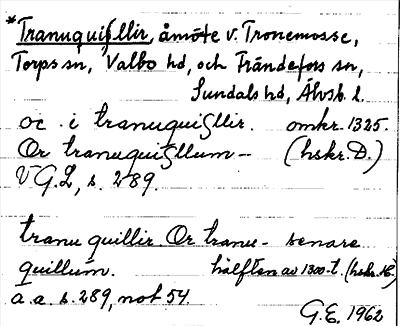 *Tranuquiſllir, åmöte v. Tronemosse,
Torps sn, Valbo hd, och Frändefors sn,
Sundals hd, Älvsb. l.
oc . i tranuquiſllir. omkr. 1325.
Or tranuquiſllum – (hskr. D.)
VGL, s. 289.
tranu quillir Or tranu- senare
quillum. hälften av 1300-t. (hskr. E)
a.a. s. 289, not 54.
G.E. 1962